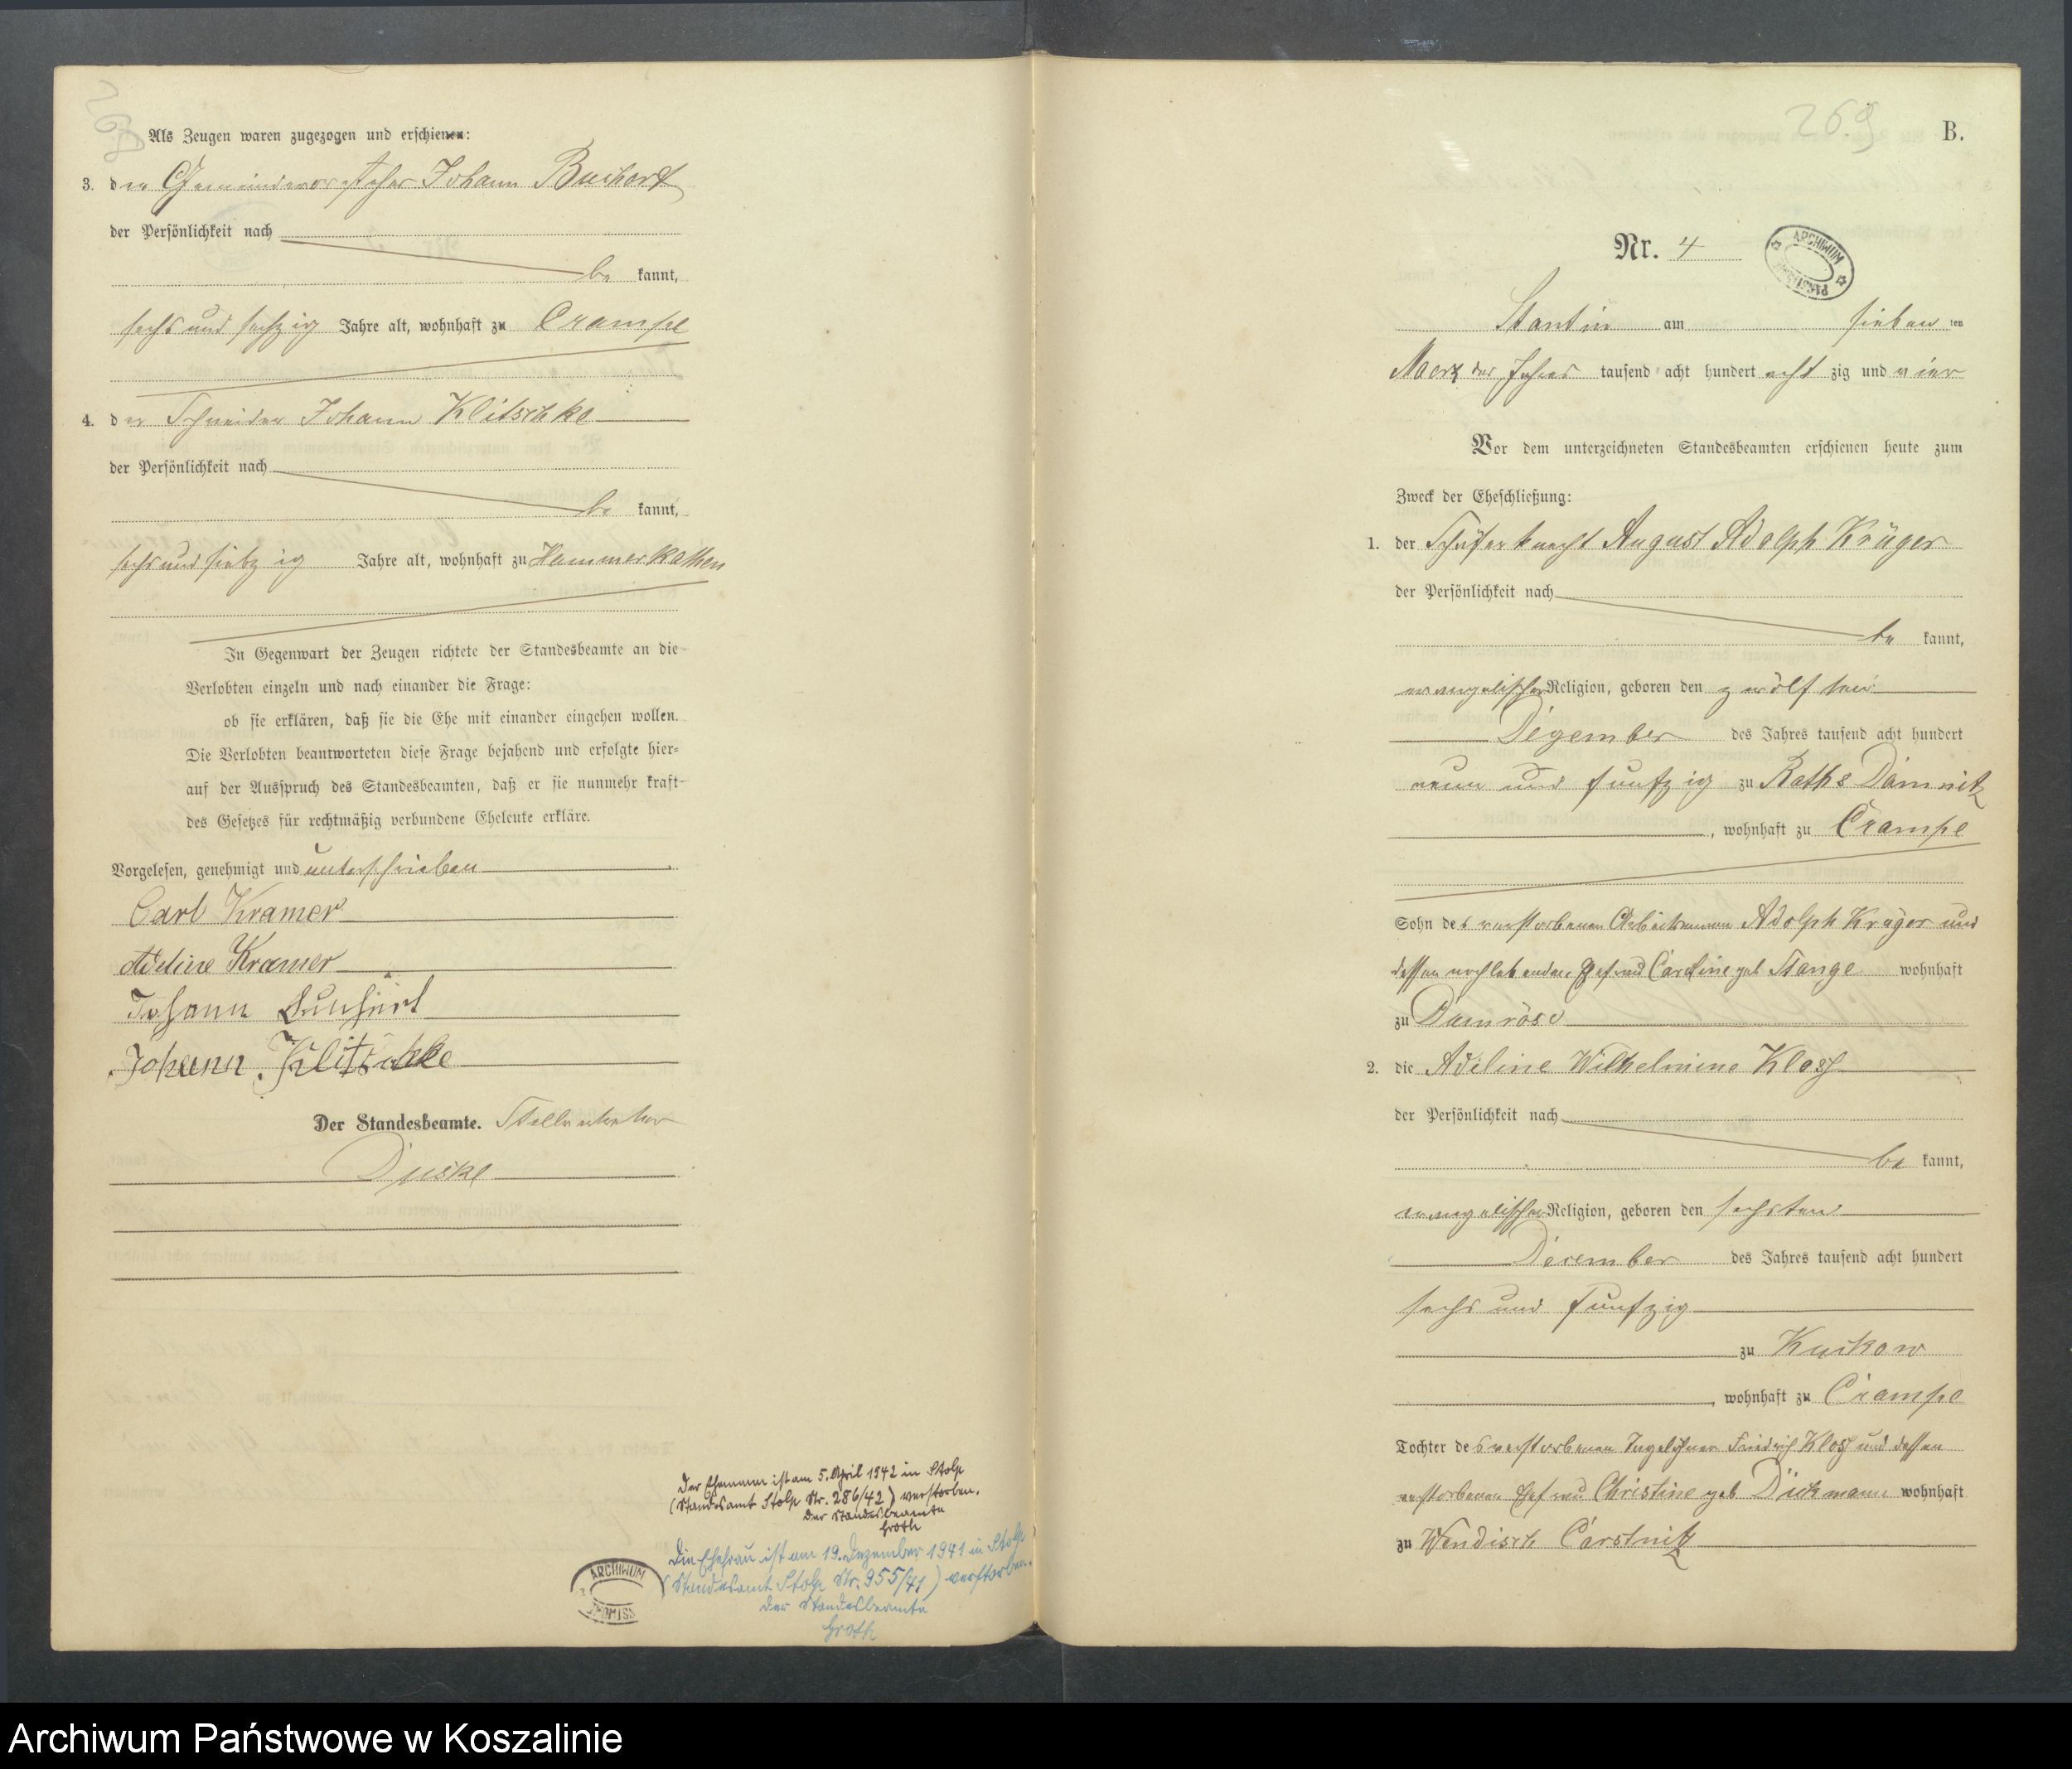 Als Zeugen waren zugezogen und erschienen:
3. der Gemeindevorsteher Johann
der Persönlichkeit nach
be kannt,
sechs und sechzig Jahre alt, wohnhaft zu Crampe
4. der Schneider Johann Klitschke
der Persönlichkeit nach
be kannt,
sechs und siebzig Jahre alt, wohnhaft zu Hammerkathen
In Gegenwart der Zeugen richtete der Standesbeamte an die
Verlobten einzeln und nach einander die Frage:
ob sie erklären, daß sie die Ehe mit einander eingehen wollen.
Die Verlobten beantworteten diese Frage bejahend und erfolgte hier-
auf der Ausspruch des Standesbeamten, daß er sie nunmehr kraft
des Gesetzes für rechtmäßig verbundene Eheleute erkläre.
Vorgelesen, genehmigt und unterschrieben
Carl Kramer
Adeline Kramer
Johann
Johann Klitschke
Der Standesbeamte. Stellvertreter
Der Ehemann ist am 5. April 1942 in Stolp
(Standesamt Stolp Nr. 286/42) verstorben.
Der Standesbeamte
Groth
Die Ehefrau ist am 19. Dezember 1941 in Stolp
(Standesamt Stolp Nr. 955/41) verstorben.
Der Standesbeamte
Groth
ARCHIWUM
269
B.
Nr. 4
ARCHIWUM
Stantin am sieben ten
Maerz des Jahres tausend acht hundert acht zig und vier
Vor dem unterzeichneten Standesbeamten erschienen heute zum
Zweck der Eheschließung:
1. der Schäferknecht August Adolph Krüger
der Persönlichkeit nach
be kannt,
evangelischer Religion, geboren den zwölften
Dezember des Jahres tausend acht hundert
neun und funfzig zu Raths Damnitz
, wohnhaft zu Crampe
Sohn des verstorbenen Arbeitsmann Adolph Krüger und
dessen noch lebenden Ehefrau Caroline geb Stange wohnhaft
zu Damröse
2. die Adeline Wilhelmine Kloss
der Persönlichkeit nach
be kannt,
evangelischer Religion, geboren den sechsten
December des Jahres tausend acht hundert
sechs und funfzig
zu Kuckow
, wohnhaft zu Crampe
Tochter des verstorbenen Tagelöhner Friedrich Kloss und dessen
verstorbenen Ehefrau Christine geb Dickmann wohnhaft
zu Wendisch Carstnitz
Archiwum Państwowe w Koszalinie